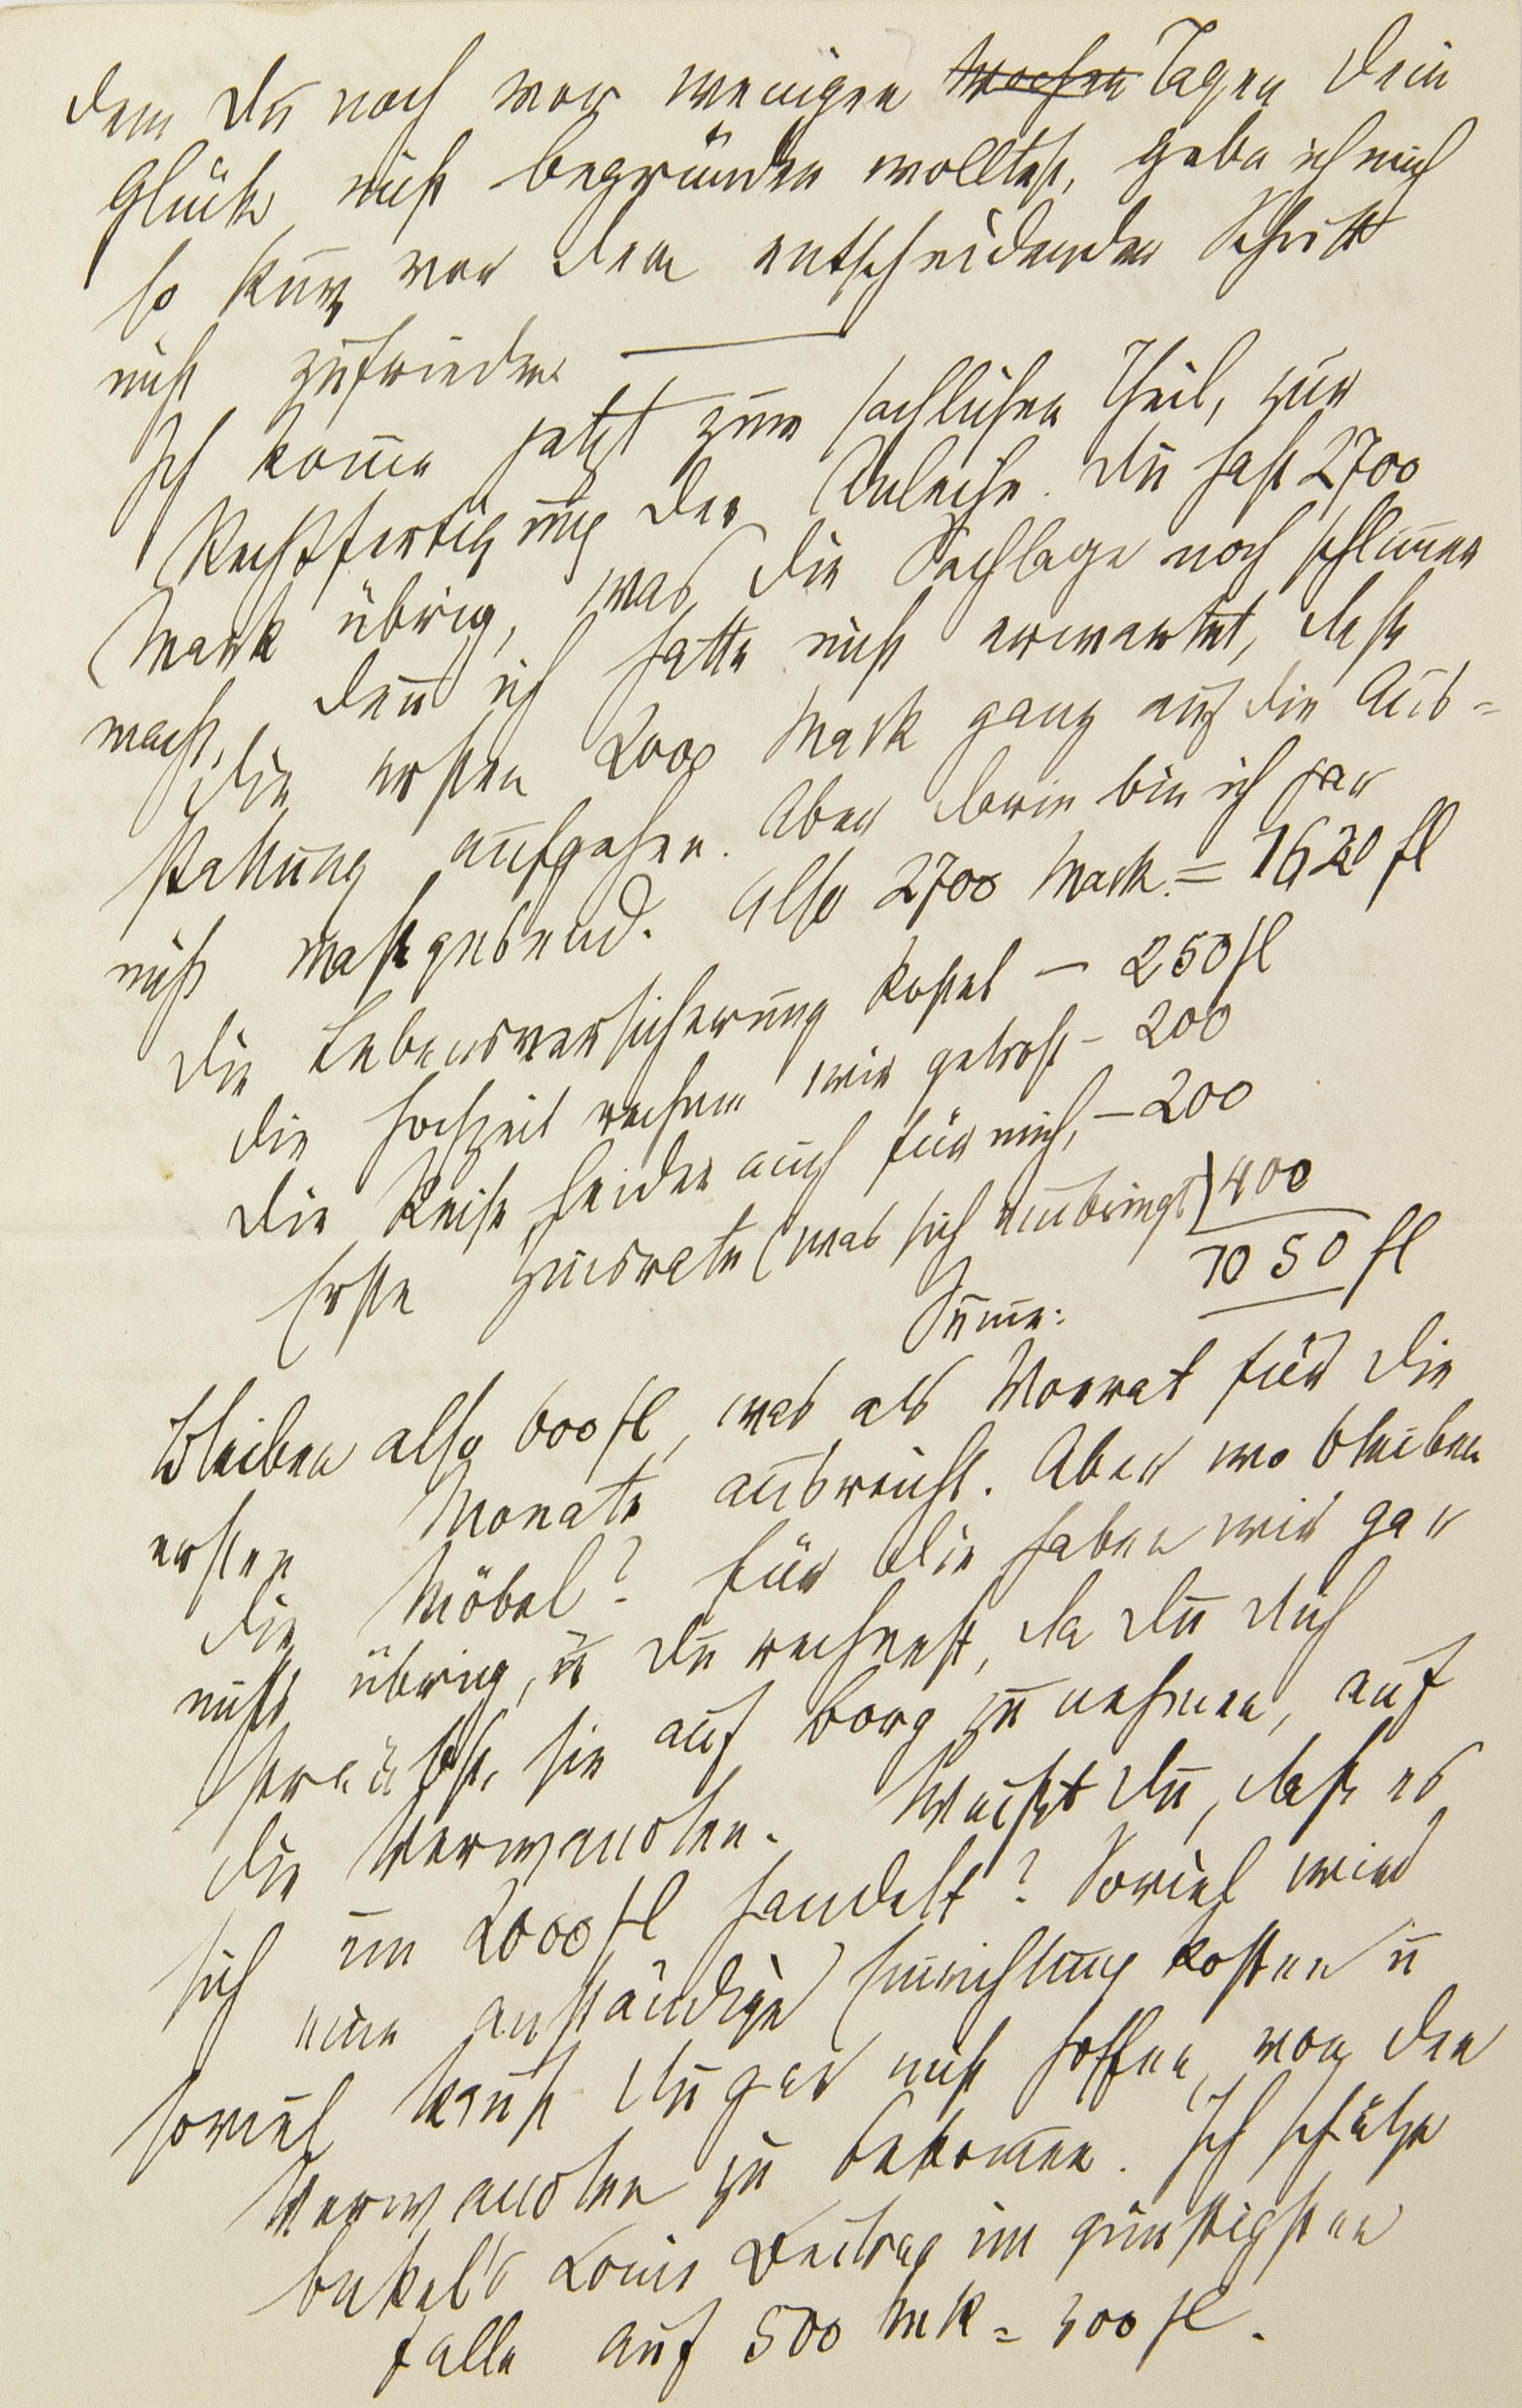 dem Du noch vor wenigen Wochen Tagen Dein
Glück nicht begründen wolltest, gebe ich mich
so kurz vor dem entscheidenden Schritt
nicht zufrieden. ———
Ich kom̄e jetzt zum sachlichen Theil, zur
Rechtfertigung der Anleihe. Du hast 2700
Mark übrig, was die Sachlage noch schlim̄er
macht, den̄ ich hatte nicht erwartet, daß
die ersten 2000 Mark ganz auf die Aus=
stattung aufgehen. Aber darin bin ich gar
nicht maßgebend. Also 2700 Mark = 1620 fl
Die Lebensversicherung kostet – 250 fl
die Hochzeit rechnen wir getrost – 200
Die Reise leider auch für mich, – 200
Erste Zinsrate (was sich einbringt) 400
Sum̄e: 1050 fl
Bleiben also 600 fl, was als Vorrat für die
ersten Monate ausreicht. Aber wo bleiben
die Möbel? Für die haben wir gar
nichts übrig, u Du rechnest, da Du Dich
sträubst, sie auf Borg zu nehmen, auf
die Verwandten. Weißt Du, daß es
sich um 2000 fl handelt? Soviel wird
eine anständige Einrichtung kosten u
soviel kan̄st Du gar nicht hoffen, von den
Verwandten zu bekom̄en. Ich schätze
Onkel's Louis Beitrag im günstigsten
Falle auf 500 Mk = 300 fl.